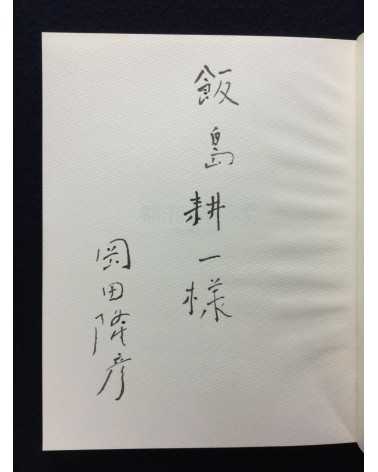 飯島耕一様
岡田隆彦